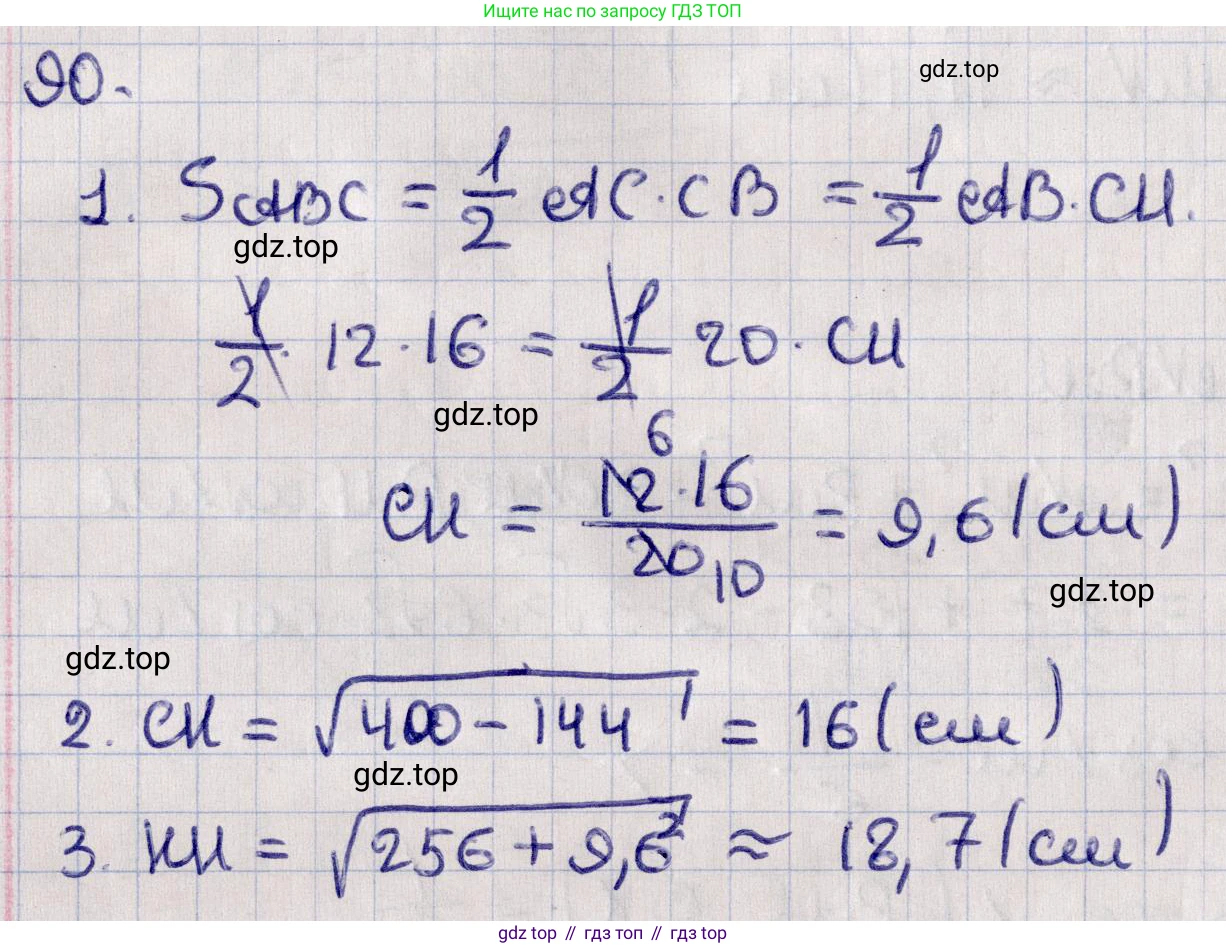 Ищите нас по запросу ГДЗ ТОП
90.
gdz.top
1. SABC = 1/2 AC · CB = 1/2 AB · CH.
gdz.top
1/2 · 12 · 16 = 1/2 20 · CH
gdz.top
6
CH = 12 · 16 / 20 10 = 9,6 (см)
gdz.top
gdz.top
2. CK = √400 - 144 = 16 (см)
gdz.top
3. KH = √256 + 9,6² ≈ 18,7 (см)
gdz top // гдз топ // gdz top